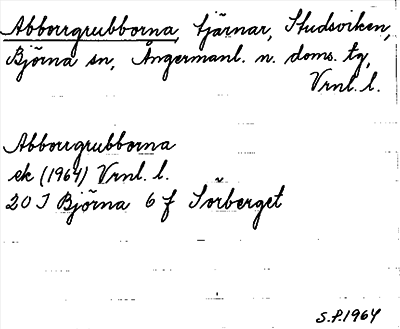 Abborrgrubborna, tjärnar, Studsviken,
Björna sn, Ångermanl. n. doms. tg,
Vrnl. l.
Abborrgrubborna
ek (1964) Vrnl. l.
20 I Björna 6 f Sörberget
S.P. 1964